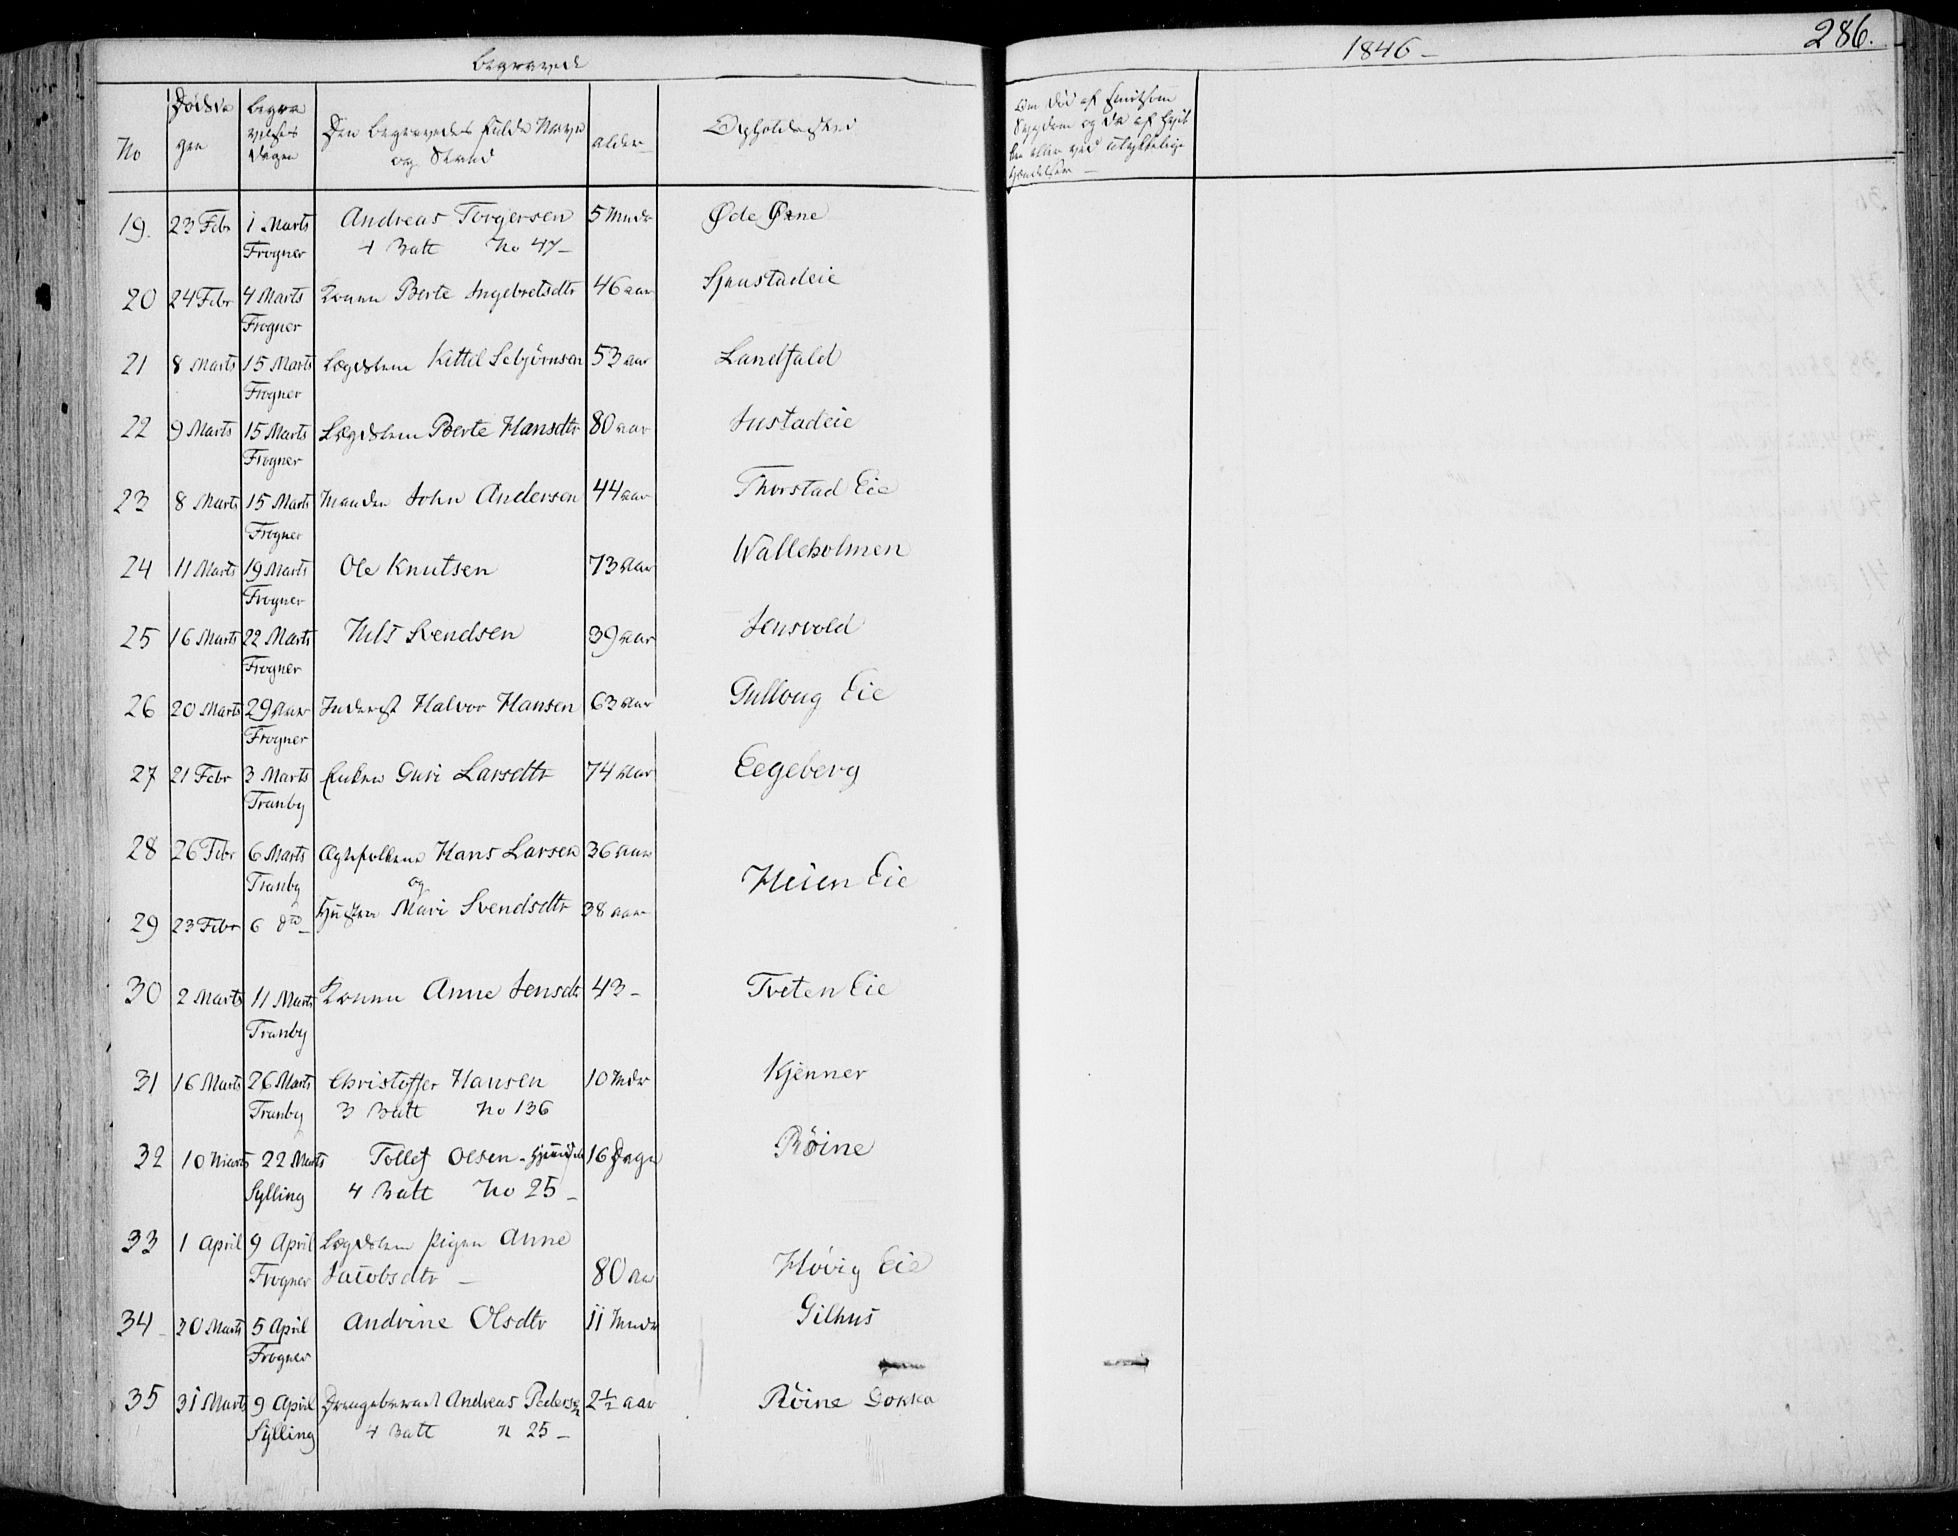 Begravede
1846 –
286.
No
Dödsda
gen
Begra
velses
Dagen
Den Begravedes fulde Navn
og Stand
Alder
Opholdssted
Om død af smitsom
Sygdom og da af hvil
ken eller ved ulykkelige
Hændelser –
19. 23 Febr 1 Marts Andreas Torgersen 5 Mndr Øde Øzne
Frogner 4 Batt No 47 –
20 24 Febr 4 Marts Konen Berte Ingebretsdtr 46 aar Sjenstadeie
Frogner
21 8 Marts 15 Marts Lægdslem Kittil Sebjörnsen 53 aar Landfald
Frogner
22 9 Marts 15 Marts Lægdslem Berte Hansdtr 80 aar Justadeie
Frogner
23 8 Marts 15 Marts Manden John Andersen 44 aar Thorstad Eie
Frogner
24 11 Marts 19 Marts Ole Knutsen 73 Aar Walleholmen
Frogner
25 16 Marts 22 Marts Nils Svendsen 39 aar Jensvold
Frogner
26 20 Marts 29 Inderst Halvor Hansen 63 Aar Gulloug Eie
Frogner
27 21 Febr 3 Marts Enken Guri Larsdtr 74 Aar Eegeberg
Tranby
28 26 Febr 6 Marts Ægtefolkene Hans Larsen 36 aar
Tranby og Heien Eie
29 23 Febr 6 dto – Hustru Mari Svendsdtr 38 aar
30 2 Marts 11 Marts Konen Anne Jensdtr 43 – Tveten Eie
Tranby
31 16 Marts 26 Marts Christoffer Hansen 10 Mdr Kjenner
Tranby 3 Batt No 136
32 10 Marts 22 Marts Tollef Olsen – 16 Dage Röine
Sylling 4 Batt No 25 –
33 1 April 9 April Lægdslem Pigen Anne
Frogner Jacobsdtr – 80 aar Hövig Eie
34 – 30 Marts 5 April Andrine Olsdtr 11 Mndr Gilhus
Frogner
35 31 Marts 9 April Drengebarnet Andreas Pedersen 2½ aar Röine Dokka
Sylling 4 Batt N 25 –